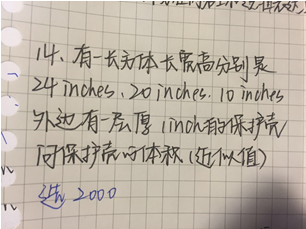 14、有一长方体长宽高分别是
24 inches、20 inches、10 inches
外边有一层厚 1 inch 的保护壳
问保护壳的体积(近似值)
选 2000